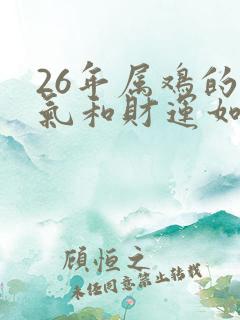 26年属鸡的
氣和財運如
顾恒之
未经同意禁止转载